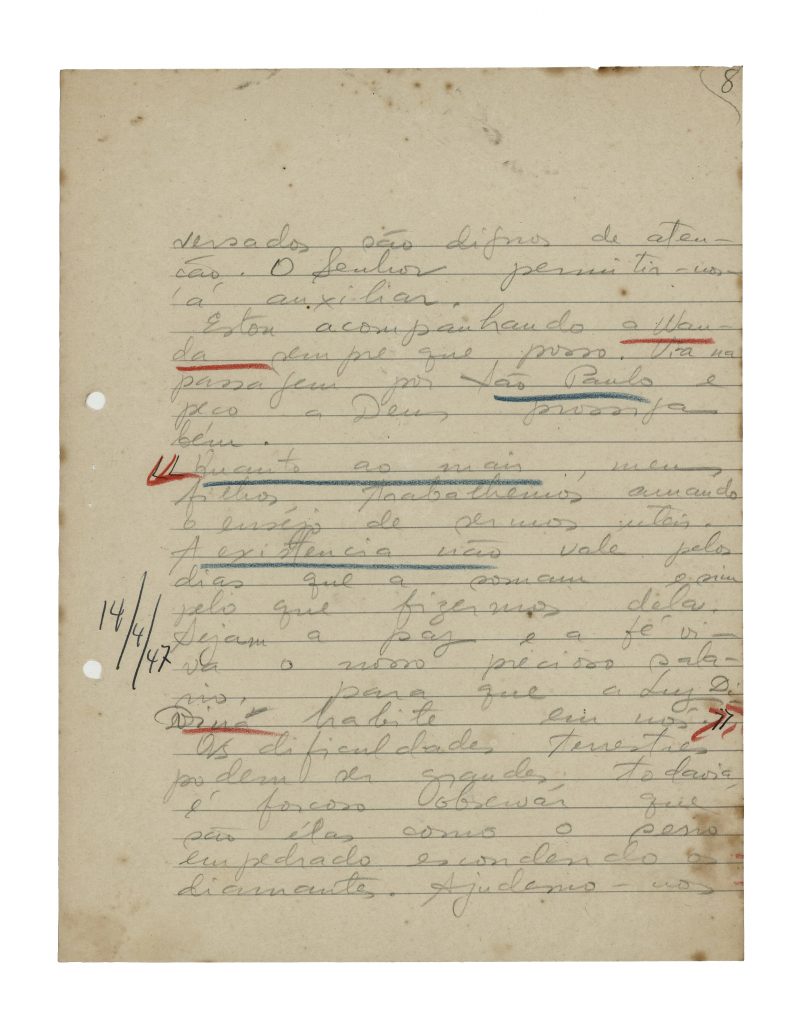 8
versados são dignos de aten-
ção. O Senhor permitir-nos-
á auxiliar.
Estou acompanhando a Wan-
da sempre que posso. Vi-a na
passagem por São Paulo e
peço a Deus prossiga
bem.
"Quanto ao mais, meus
filhos, trabalhemos amando
o ensejo de sermos uteis.
A existencia não vale pelos
dias que a somam e sim
pelo que fizermos dela.
Sejam a paz e a fé vi-
va o nosso precioso sala-
rio, para que a Luz Di
Divina habite em nós."
Os dificuldades terrestres
podem ser grandes, todavia,
é forçoso observár que
são élas como o seno
empedrado escondendo os
diamantes. Ajudemo-nos
14/4/47